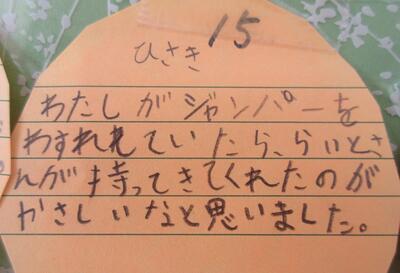 15
ひさき
わたしがジャンパーを
わすれれていたら、らいとさ
んが持ってきてくれたのが
やさしいなと思いました。